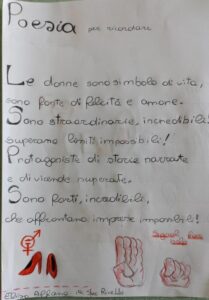 Poesia per ricordare
Le donne sono simbolo di vita,
sono fonte di felicità e amore.
Sono straordinarie, incredibili
superano limiti impossibili!
Protagoniste di storie narrate
e di vicende superate.
Sono forti, incredibili,
che affrontano imprese impossibili!